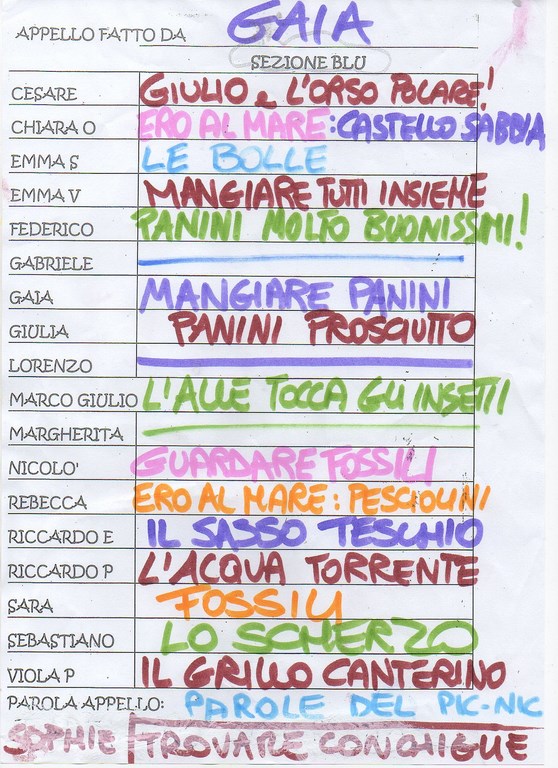 APPELLO FATTO DA GAIA
SEZIONE BLU
CESARE GIULIO e L'ORSO POLARE!
CHIARA O ERO AL MARE: CASTELLO SABBIA
EMMA S LE BOLLE
EMMA V MANGIARE TUTTI INSIEME
FEDERICO PANINI MOLTO BUONISSIMI!
GABRIELE
GAIA MANGIARE PANINI
GIULIA PANINI PROSCIUTTO
LORENZO
MARCO GIULIO L'ALLE TOCCA GLI INSETTI
MARGHERITA
NICOLO' GUARDARE FOSSILI
REBECCA ERO AL MARE: PESCIOLINI
RICCARDO E IL SASSO TESCHIO
RICCARDO P L'ACQUA TORRENTE
SARA FOSSILI
SEBASTIANO LO SCHERZO
VIOLA P IL GRILLO CANTERINO
PAROLA APPELLO: PAROLE DEL PIC-NIC
SOPHIE TROVARE CONCHIGLIE